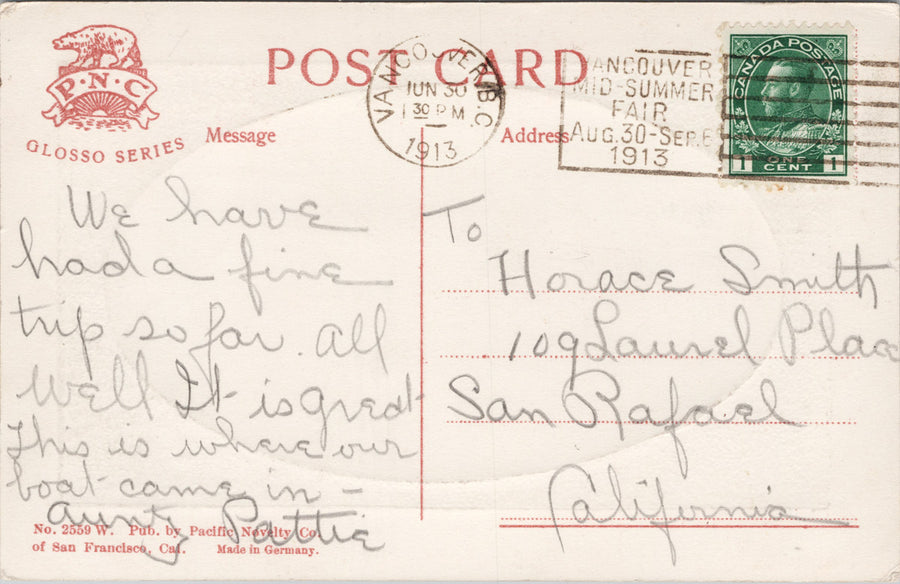 P·N·C
GLOSSO SERIES
POST CARD
Message
Address
VANCOUVER, B.C.
JUN 30
1 30 P.M.
1913
VANCOUVER
MID-SUMMER
FAIR
AUG. 30-SEP. 6
1913
CANADA POSTAGE
1 ONE CENT 1
We have
had a fine
trip so far. All
well It is great
This is where our
boat came in –
Aunty Pattie
To
Horace Smith
109 Laurel Place
San Rafael
California
No. 2559 W. Pub. by Pacific Novelty Co.
of San Francisco, Cal. Made in Germany.